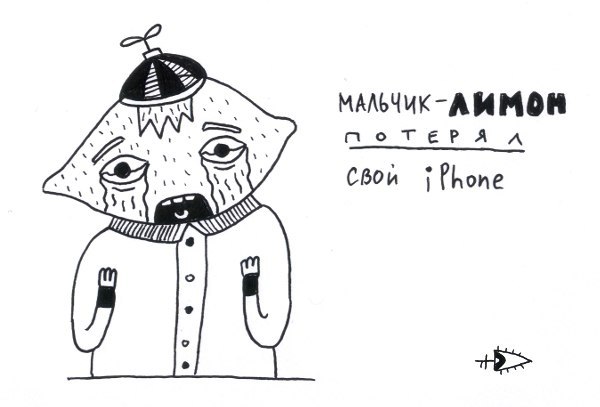 МАЛЬЧИК-ЛИМОН
ПОТЕРЯЛ
СВОЙ iPhone